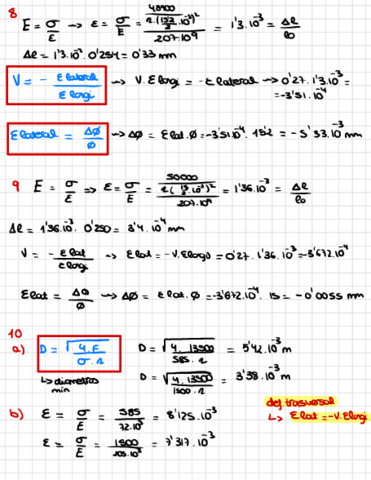 8 E = σ/E → ε = σ/E = 48900/π(15.2/2 ·10⁻³)²/207·10⁹ = 1'3·10⁻³ = Δl/l₀
Δl = 1'3·10⁻³·0'254 = 0'33 mm
V = - Elateral/Elongi → V·Elongi = -Elateral → 0'27·1'3·10⁻³ =
= -3'51·10⁻⁴
Elateral = ΔØ/Ø → ΔØ = Elat·Ø = -3'51·10⁻⁴·15'2 = -5'33·10⁻³ mm
9 E = σ/E → ε = σ/E = 50000/π(15/2·10⁻³)²/207·10⁹ = 1'36·10⁻³ = Δl/l₀
Δl = 1'36·10⁻³·0'250 = 3'4·10⁻⁴ m
V = - Elat/Elongi → Elat = -V·Elongi = 0'27·1'36·10⁻³ = -3'672·10⁻⁴
Elat = ΔØ/Ø → ΔØ = Elat·Ø = -3'672·10⁻⁴·15 = -0'0055 mm
10
a) D = √4·F/σ·π D = √4·13500/585·π = 5'42·10⁻³ m
↳ diametro min D = √4·13500/1500·π = 3'38·10⁻³ m
b) E = σ/E = 585/72·10³ = 8'125·10⁻³
def. trasversal
E = σ/E = 1500/205·10³ = 7'317·10⁻³
↳ Elat = -V·Elongi